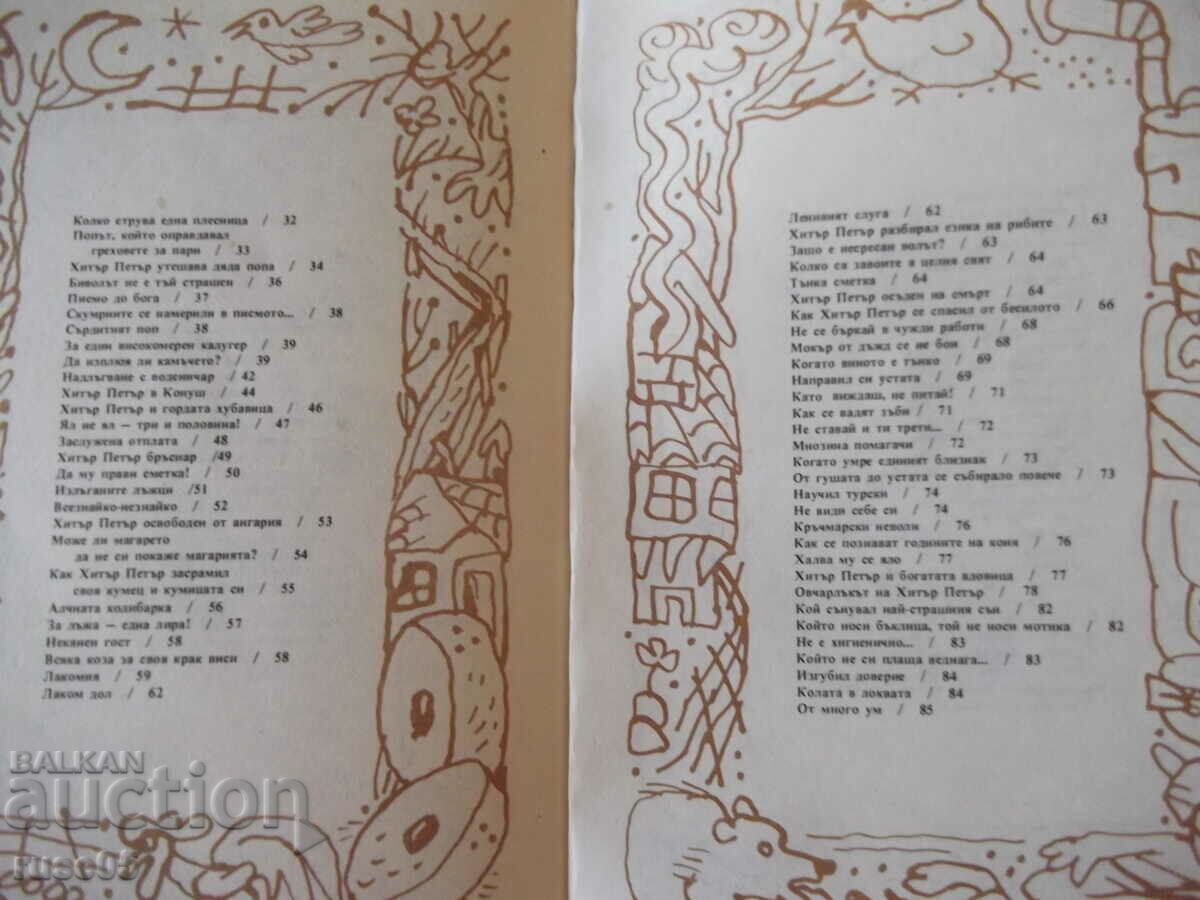 Колко струва една плесница / 32
Попът, който оправдавал
греховете за пари / 33
Хитър Петър утешава дяда попа / 34
Биволът не е тъй страшен / 36
Писмо до бога / 37
Скумриите се намерили в писмото... / 38
Сърдитият поп / 38
За един високомерен калугер / 39
Да изплюя ли камъчето? / 39
Надлъгване с воденичар / 42
Хитър Петър в Конуш / 44
Хитър Петър и гордата хубавица / 46
Ял не ял — три и половина! / 47
Заслужена отплата / 48
Хитър Петър бръснар /49
Да му прави сметка! / 50
Излъганите лъжци /51
Всезнайко-незнайко / 52
Хитър Петър освободен от ангария / 53
Може ли магарето
да не си покаже магарията? / 54
Как Хитър Петър засрамил
своя кумец и кумицата си / 55
Алчната колибарка / 56
За лъжа — една лира! / 57
Неканен гост / 58
Всяка коза за своя крак виси / 58
Лакомия / 59
Лаком дол / 62
Ленивият слуга / 62
Хитър Петър разбирал езика на рибите / 63
Защо е несресан волът? / 63
Колко са завоите в целия свят / 64
Тънка сметка / 64
Хитър Петър осъден на смърт / 64
Как Хитър Петър се спасил от бесилото / 66
Не се бъркай в чужди работи / 68
Мокър от дъжд се не бои / 68
Когато виното е тънко / 69
Направил си устата / 69
Като виждаш, не питай! / 71
Как се вадят зъби / 71
Не ставай и ти трети... / 72
Мнозина помагачи / 72
Когато умре единият близнак / 73
От гушата до устата се събирало повече / 73
Научил турски / 74
Не види себе си / 74
Кръчмарски неволи / 76
Как се познават годините на коня / 76
Халва му се яло / 77
Хитър Петър и богатата вдовица / 77
Овчарлъкът на Хитър Петър / 78
Кой сънувал най-страшния сън / 82
Който носи бъклица, той не носи мотика / 82
Не е хигиенично... / 83
Който не си плаща веднага... / 83
Изгубил доверие / 84
Колата в локвата / 84
От много ум / 85
BALKAN
auction
ruse95